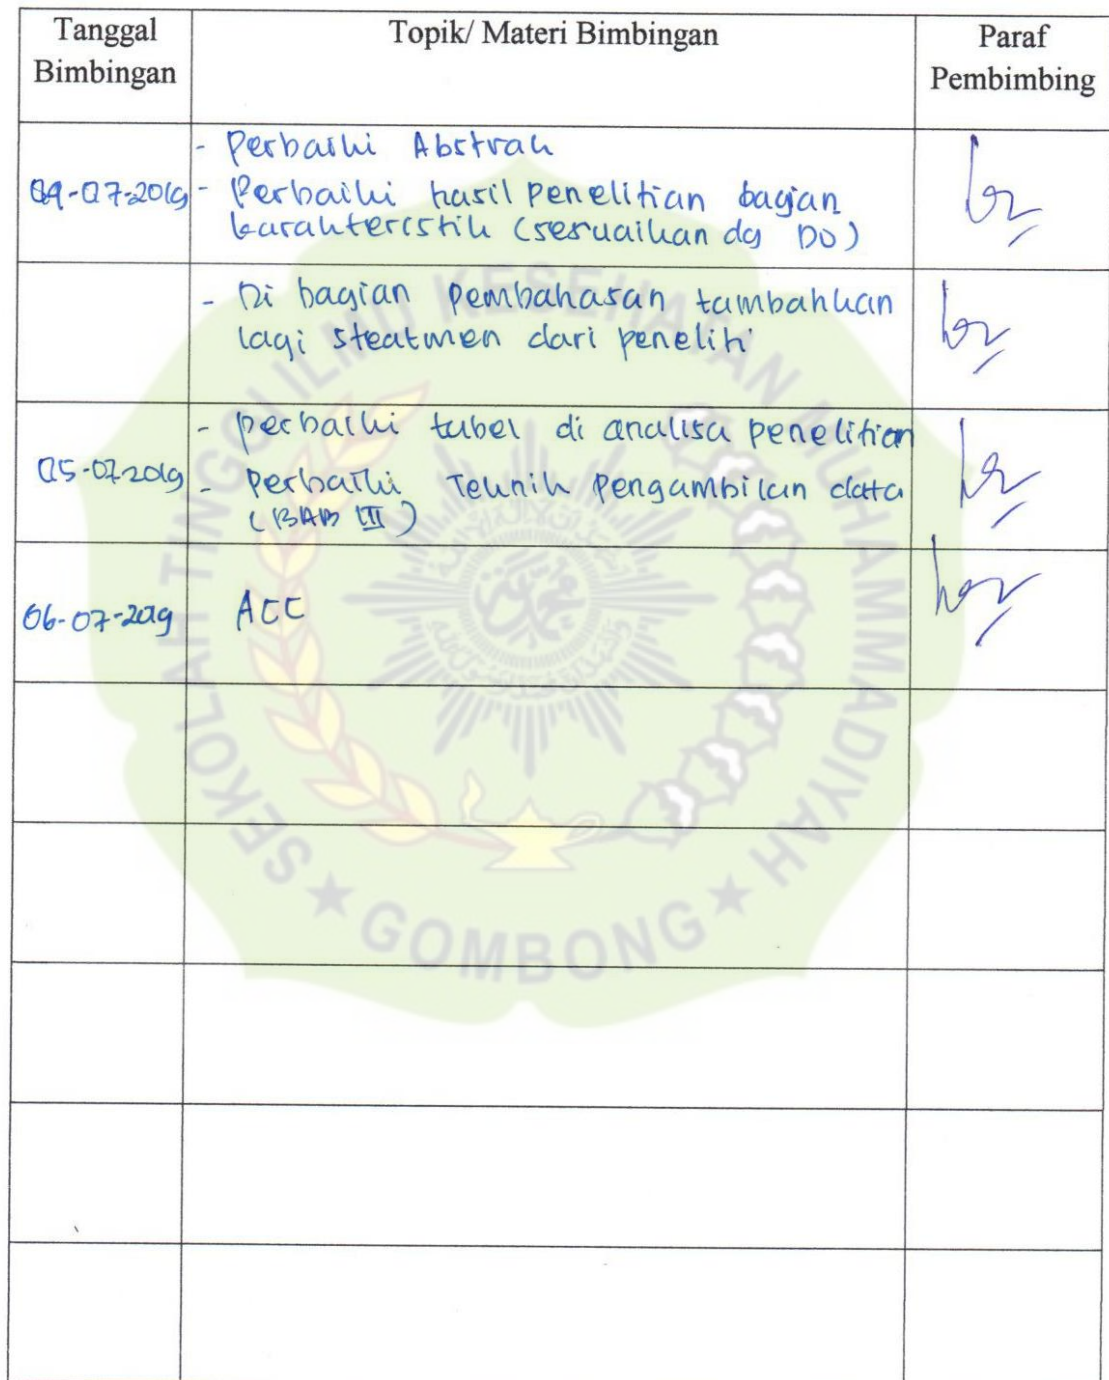 Tanggal Bimbingan
Topik/ Materi Bimbingan
Paraf Pembimbing
- Perbaiki Abstrak
- Perbaiki hasil penelitian bagian
karakteristik (sesuaikan dg DO)
- Di bagian pembahasan tambahkan
lagi steatmen dari peneliti
05-07-2019
- perbaiki tabel di analisa penelitian
- Perbaiki Teknik pengambilan data
(BAB III)
06-07-2019
ACC
SEKOLAH TINGGI ILMU KESEHATAN MUHAMMADIYAH
GOMBONG